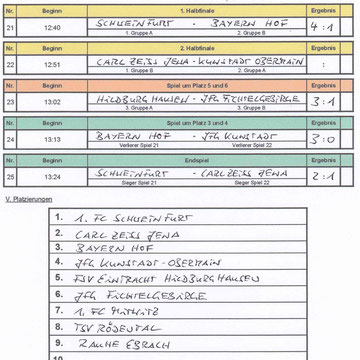 Nr. Beginn 1. Halbfinale Ergebnis
21 12:40 SCHWEINFURT - BAYERN HOF 4 : 1
1. Gruppe A 2. Gruppe B
Nr. Beginn 2. Halbfinale Ergebnis
22 12:51 CARL ZEISS JENA - KUNSTADT OBERMAIN :
2. Gruppe A 1. Gruppe B
Nr. Beginn Spiel um Platz 5 und 6 Ergebnis
23 13:02 HILDBURGHAUSEN - JFG FICHTELGEBIRGE 3 : 1
3. Gruppe A 3. Gruppe B
Nr. Beginn Spiel um Platz 3 und 4 Ergebnis
24 13:13 BAYERN HOF - JFG KUNSTADT 3 : 0
Verlierer Spiel 21 Verlierer Spiel 22
Nr. Beginn Endspiel Ergebnis
25 13:24 SCHWEINFURT - CARL ZEISS JENA 2 : 1
Sieger Spiel 21 Sieger Spiel 22
V. Platzierungen
1. 1. FC SCHWEINFURT
2. CARL ZEISS JENA
3. BAYERN HOF
4. JFG KUNSTADT-OBERMAIN
5. FSV EINTRACHT HILDBURGHAUSEN
6. JFG FICHTELGEBIRGE
7. 1. FC MITWITZ
8. TSV RÖDENTAL
9. RAUHE EBRACH
10.